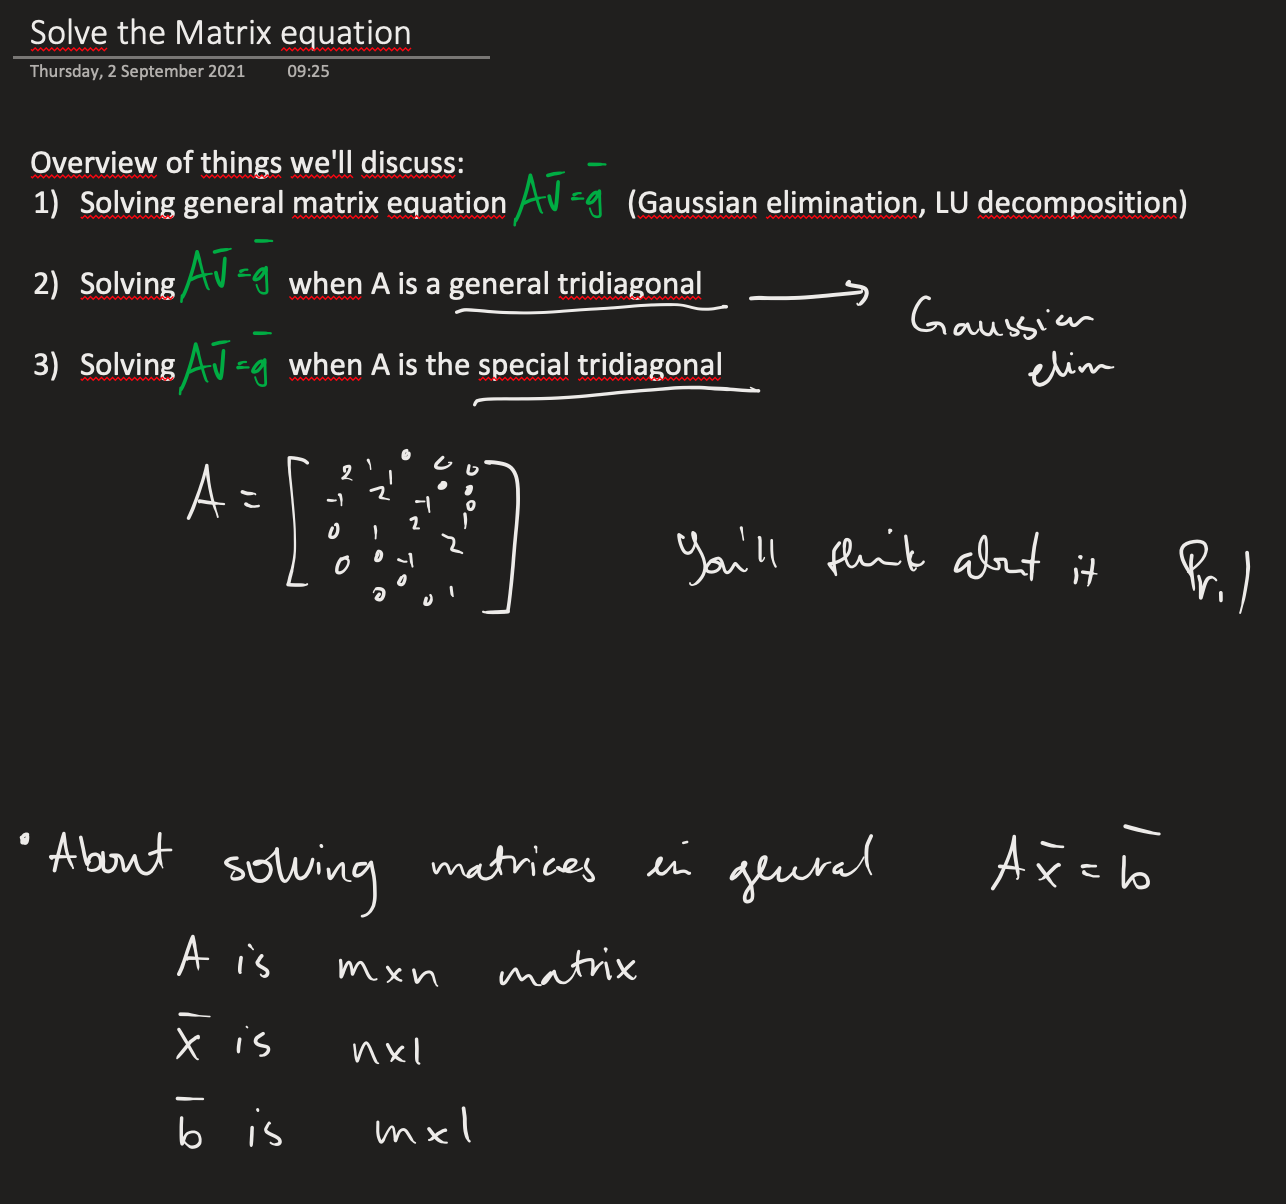 Solve the Matrix equation
Thursday, 2 September 2021 09:25
Overview of things we'll discuss:
1) Solving general matrix equation Av̄ = ḡ (Gaussian elimination, LU decomposition)
2) Solving Av̄ = ḡ when A is a general tridiagonal → Gaussian elim
3) Solving Av̄ = ḡ when A is the special tridiagonal
A =
You'll think about it Pr. 1
• About solving matrices in general Ax̄ = b̄
A is m×n matrix
x̄ is n×1
b̄ is m×1